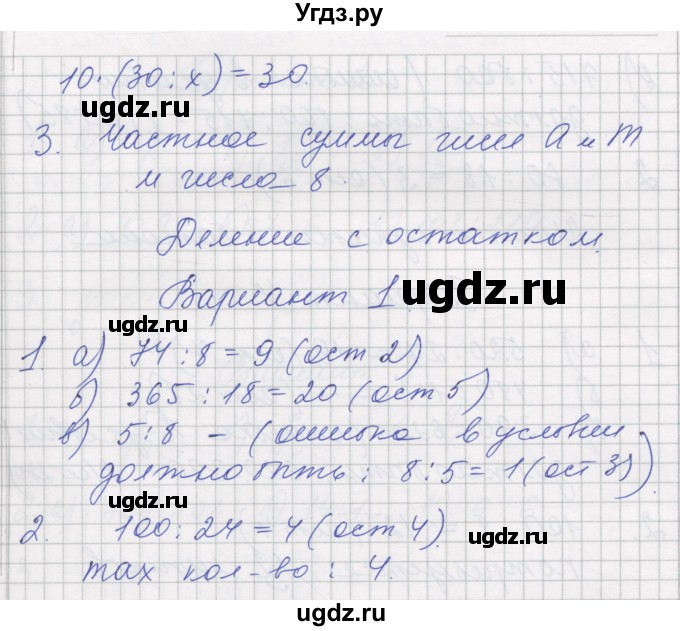 Угдз.ру
10·(30:х)=30.
ugdz.ru
ugdz.ru
3. Частное суммы чисел А и m
и числа 8.
ugdz.ru
Деление с остатком.
Вариант 1.
ugdz.ru
ugdz.ru
1. а) 74:8=9 (ост 2)
б) 365:18=20 (ост 5)
ugdz.ru
в) 5:8 – (ошибка в условии
ugdz.ru
должно быть: 8:5=1 (ост 3)).
ugdz.ru
2. 100:24=4 (ост 4).
ugdz.ru
max кол-во: 4.
ugdz.ru